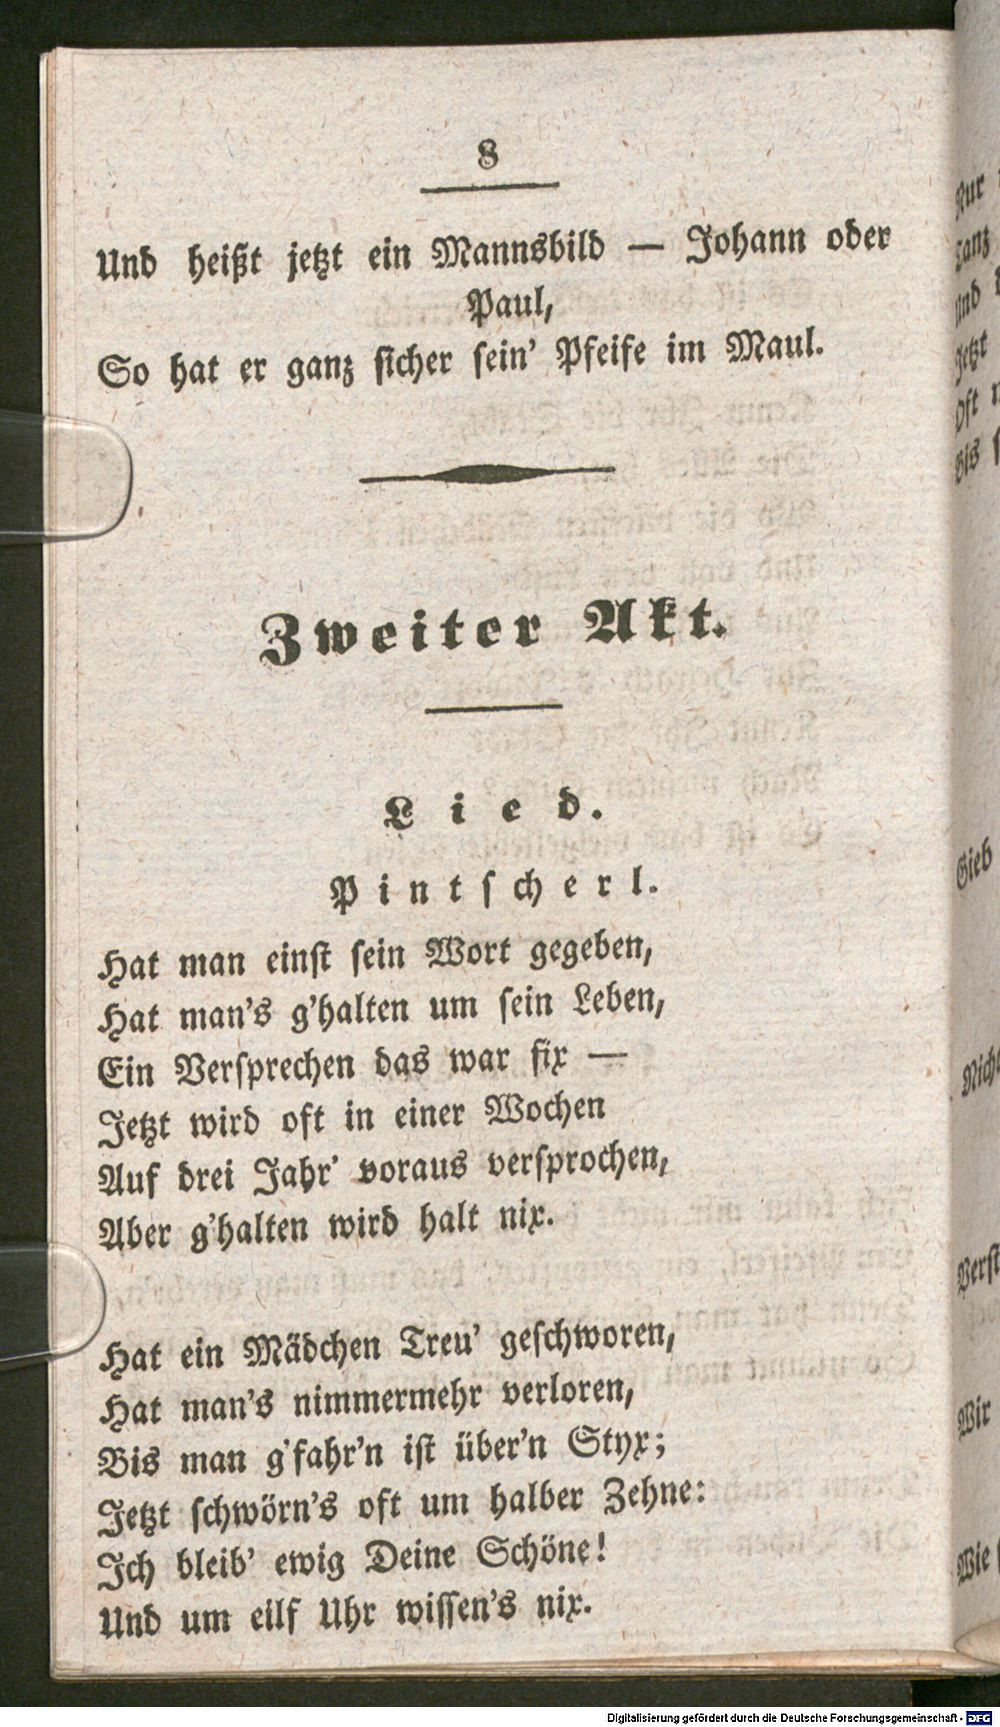 8
Und heißt jetzt ein Mannsbild — Johann oder
Paul,
So hat er ganz sicher sein' Pfeife im Maul.
Zweiter Akt.
Lied.
Pintscherl.
Hat man einst sein Wort gegeben,
Hat man's g'halten um sein Leben,
Ein Versprechen das war fix —
Jetzt wird oft in einer Wochen
Auf drei Jahr' voraus versprochen,
Aber g'halten wird halt nix.
Hat ein Mädchen Treu' geschworen,
Hat man's nimmermehr verloren,
Bis man g'fahr'n ist über'n Styx;
Jetzt schwörn's oft um halber Zehne:
Ich bleib' ewig Deine Schöne!
Und um eilf Uhr wissen's nix.
Nur
ganz
und
Jetzt
Oft
Bis
Gieb
Wir
Wie
Digitalisierung gefördert durch die Deutsche Forschungsgemeinschaft - DFG